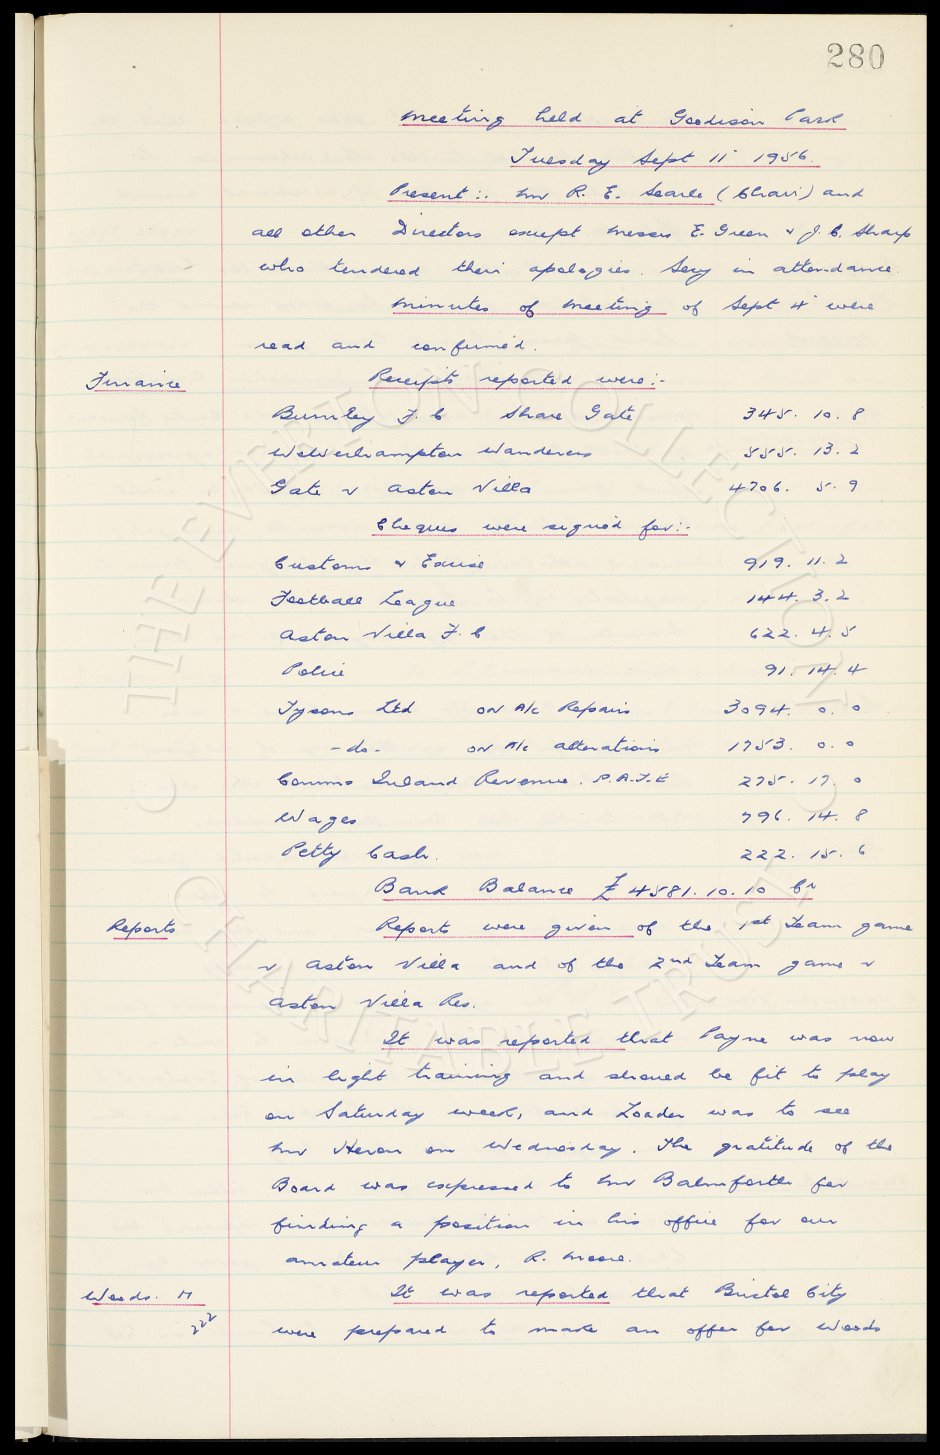 280
Meeting held at Goodison Park
Tuesday Sept 11 1956.
Present:. Mr R. E. Searle (Chair) and
all other Directors except Messrs E. Green & J. C. Sharp
who tendered their apologies. Secy in attendance.
Minutes of Meeting of Sept 4 were
read and confirmed.
Finance Receipts reported were:-
Burnley F. C Share Gate 345. 10. 8
Wolverhampton Wanderers 555. 13. 2
Gate v Aston Villa 4706. 5. 9
Cheques were signed for:-
Customs & Excise 919. 11. 2
Football League 144. 3. 2
Aston Villa F. C 622. 4. 5
Police 91. 14. 4
Tysons Ltd on A/c Repairs 3094. 0. 0
-do- on A/c alterations 1753. 0. 0
Comms Inland Revenue. P.A.Y.E 275. 17. 0
Wages 796. 14. 8
Petty Cash. 222. 15. 6
Bank Balance £4581.10.10 Cr
Reports Reports were given of the 1st Team game
v Aston Villa and of the 2nd Team game v
Aston Villa Res.
It was reported that Payne was now
in light training and should be fit to play
on Saturday week, and Loader was to see
Mr Heron on Wednesday. The gratitude of the
Board was expressed to Mr Balmforth for
finding a position in his office for our
amateur player, R. Moore.
Woods. M It was reported that Bristol City
222 were prepared to make an offer for Woods
© THE EVERTON COLLECTION
CHARITABLE TRUST